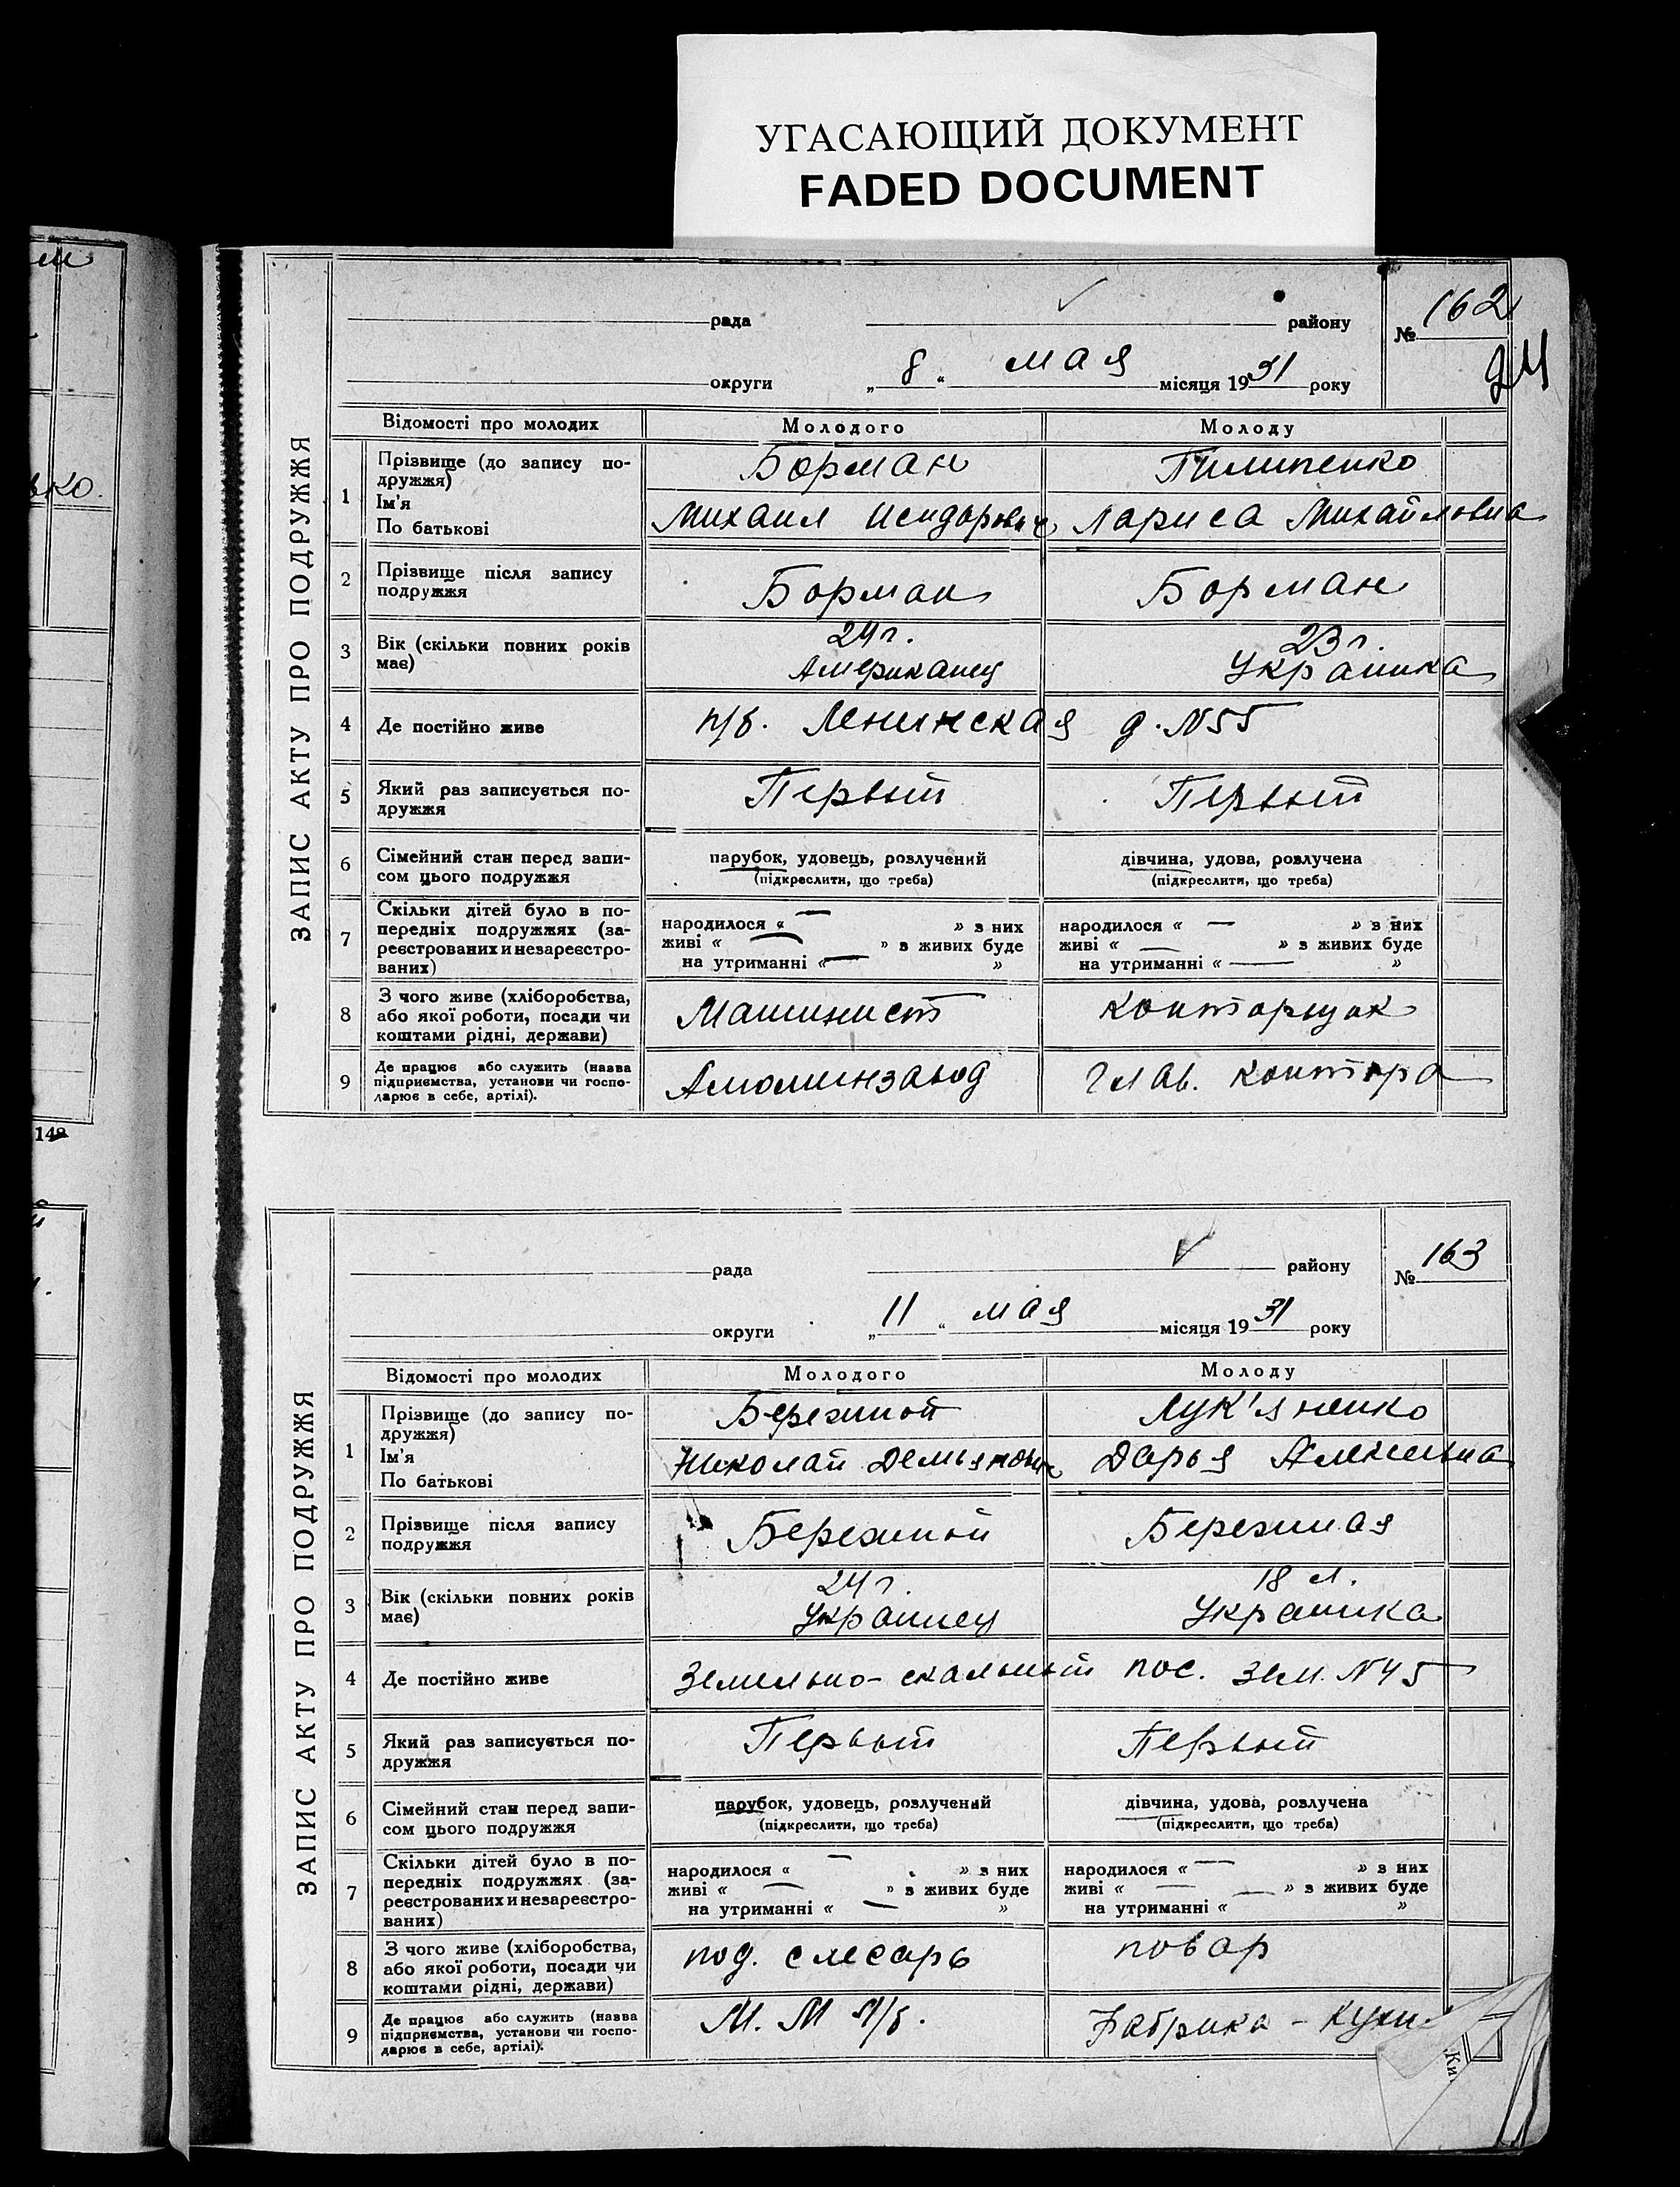 УГАСАЮЩИЙ ДОКУМЕНТ
FADED DOCUMENT
ЗАПИС АКТУ ПРО ПОДРУЖЖЯ
рада району № 162
24
округи „ 8 “ мая місяця 1931 року
Відомості про молодих Молодого Молоду
1 Прізвище (до запису по-
дружжя) Борман Пилипенко
Ім'я
По батькові Михаил Исидорович Лариса Михайловна
2 Прізвище після запису
подружжя Борман Борман
3 Вік (скільки повних років
має) 24 г. 23 г.
Американец Украинка
4 Де постійно живе п/б. Ленинская д. N 55
5 Який раз записується по-
дружжя Первый Первый
6 Сімейний стан перед запи-
сом цього подружжя
парубок, удовець, розлучений дівчина, удова, розлучена
(підкреслити, що треба) (підкреслити, що треба)
7 Скільки дітей було в по-
передніх подружжях (за-
реєстрованих и незареєстро-
ваних)
народилося « — » з них народилося « — » в них
живі « — » з живих буде живі « — » з живих буде
на утриманні « — » на утриманні « — »
8 З чого живе (хліборобства,
або якої роботи, посади чи
коштами рідні, держави)
Машинист конторщик
9 Де працює або служить (назва
підприємства, установи чи госпо-
дарює в себе, артілі).
Алюминзавод Глав. контора
ЗАПИС АКТУ ПРО ПОДРУЖЖЯ
рада району № 163
округи „ 11 “ мая місяця 1931 року
Відомості про молодих Молодого Молоду
1 Прізвище (до запису по-
дружжя) Бережной Лук'яненко
Ім'я
По батькові Николай Демьянович Дарья Алексеевна
2 Прізвище після запису
подружжя Бережной Бережная
3 Вік (скільки повних років
має) 24 г. 18 л.
Украинец Украинка
4 Де постійно живе Земельно-скальный пос. зем. N 45
5 Який раз записується по-
дружжя Первый Первый
6 Сімейний стан перед запи-
сом цього подружжя
парубок, удовець, розлучений дівчина, удова, розлучена
(підкреслити, що треба) (підкреслити, що треба)
7 Скільки дітей було в по-
передніх подружжях (за-
реєстрованих и незареєстро-
ваних)
народилося « — » з них народилося « — » з них
живі « — » в живих буде живі « — » з живих буде
на утриманні « — » на утриманні « — »
8 З чого живе (хліборобства,
або якої роботи, посади чи
коштами рідні, держави)
под. слесарь повар
9 Де працює або служить (назва
підприємства, установи чи госпо-
дарює в себе, артілі).
М. М П/б. Фабрика - кухн